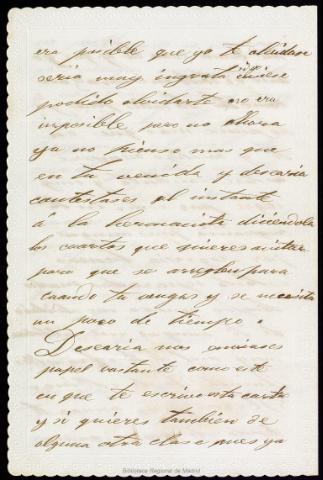 era posible que yo te olvidase
seria muy ingrata si
podido olvidarte no era
imposible pero no ahora
ya no pienso mas que
en tu venida y desearia
contestases al instante
á la hermanita diciendola
los cuartos que quieres
para que se arreglen para
cuando tu vengas y se necesita
un poco de tiempo.
Desearia nos
papel vastante como este
en que te escrivo esta carta
y si quieres tambien de
alguna otra clase pues ya
Biblioteca Regional de Madrid